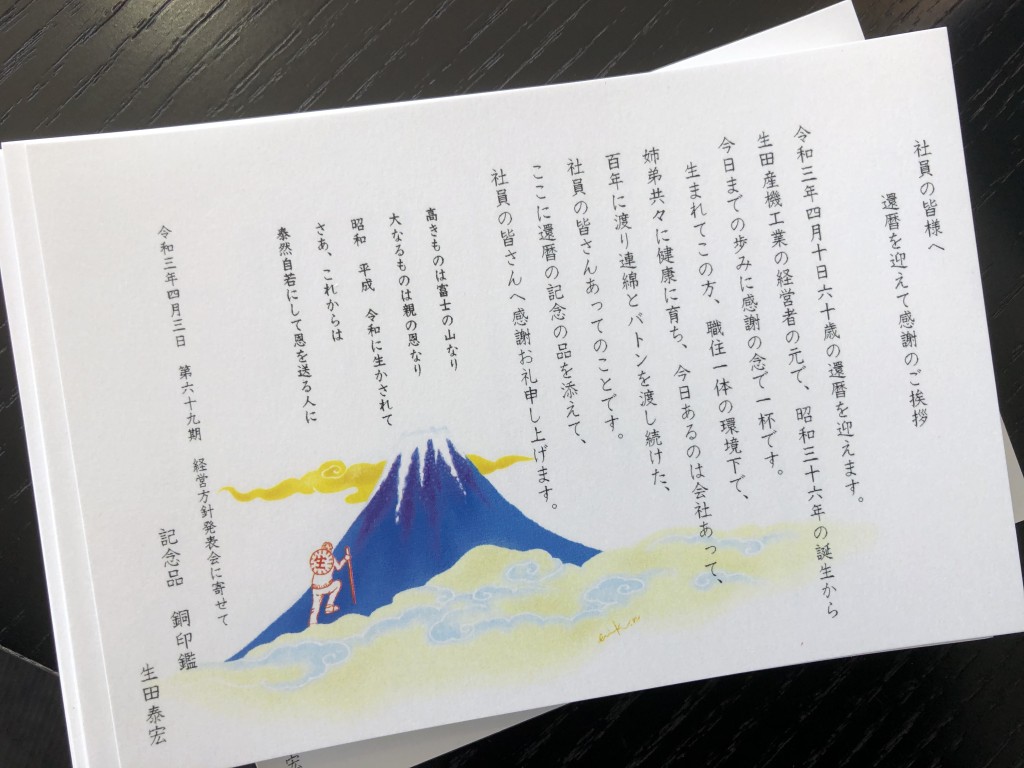 社員の皆様へ
還暦を迎えて感謝のご挨拶
令和三年四月十日六十歳の還暦を迎えます。
生田産機工業の経営者の元で、昭和三十六年の誕生から
今日までの歩みに感謝の念で一杯です。
生まれてこの方、職住一体の環境下で、
姉弟共々に健康に育ち、今日あるのは会社あって、
百年に渡り連綿とバトンを渡し続けた、
社員の皆さんあってのことです。
ここに還暦の記念の品を添えて、
社員の皆さんへ感謝お礼申し上げます。
高きものは富士の山なり
大なるものは親の恩なり
昭和 平成 令和に生かされて
さあ、これからは
泰然自若にして恩を送る人に
令和三年四月三日 第六十九期 経営方針発表会に寄せて
記念品 銅印鑑
生田泰宏
生
宏